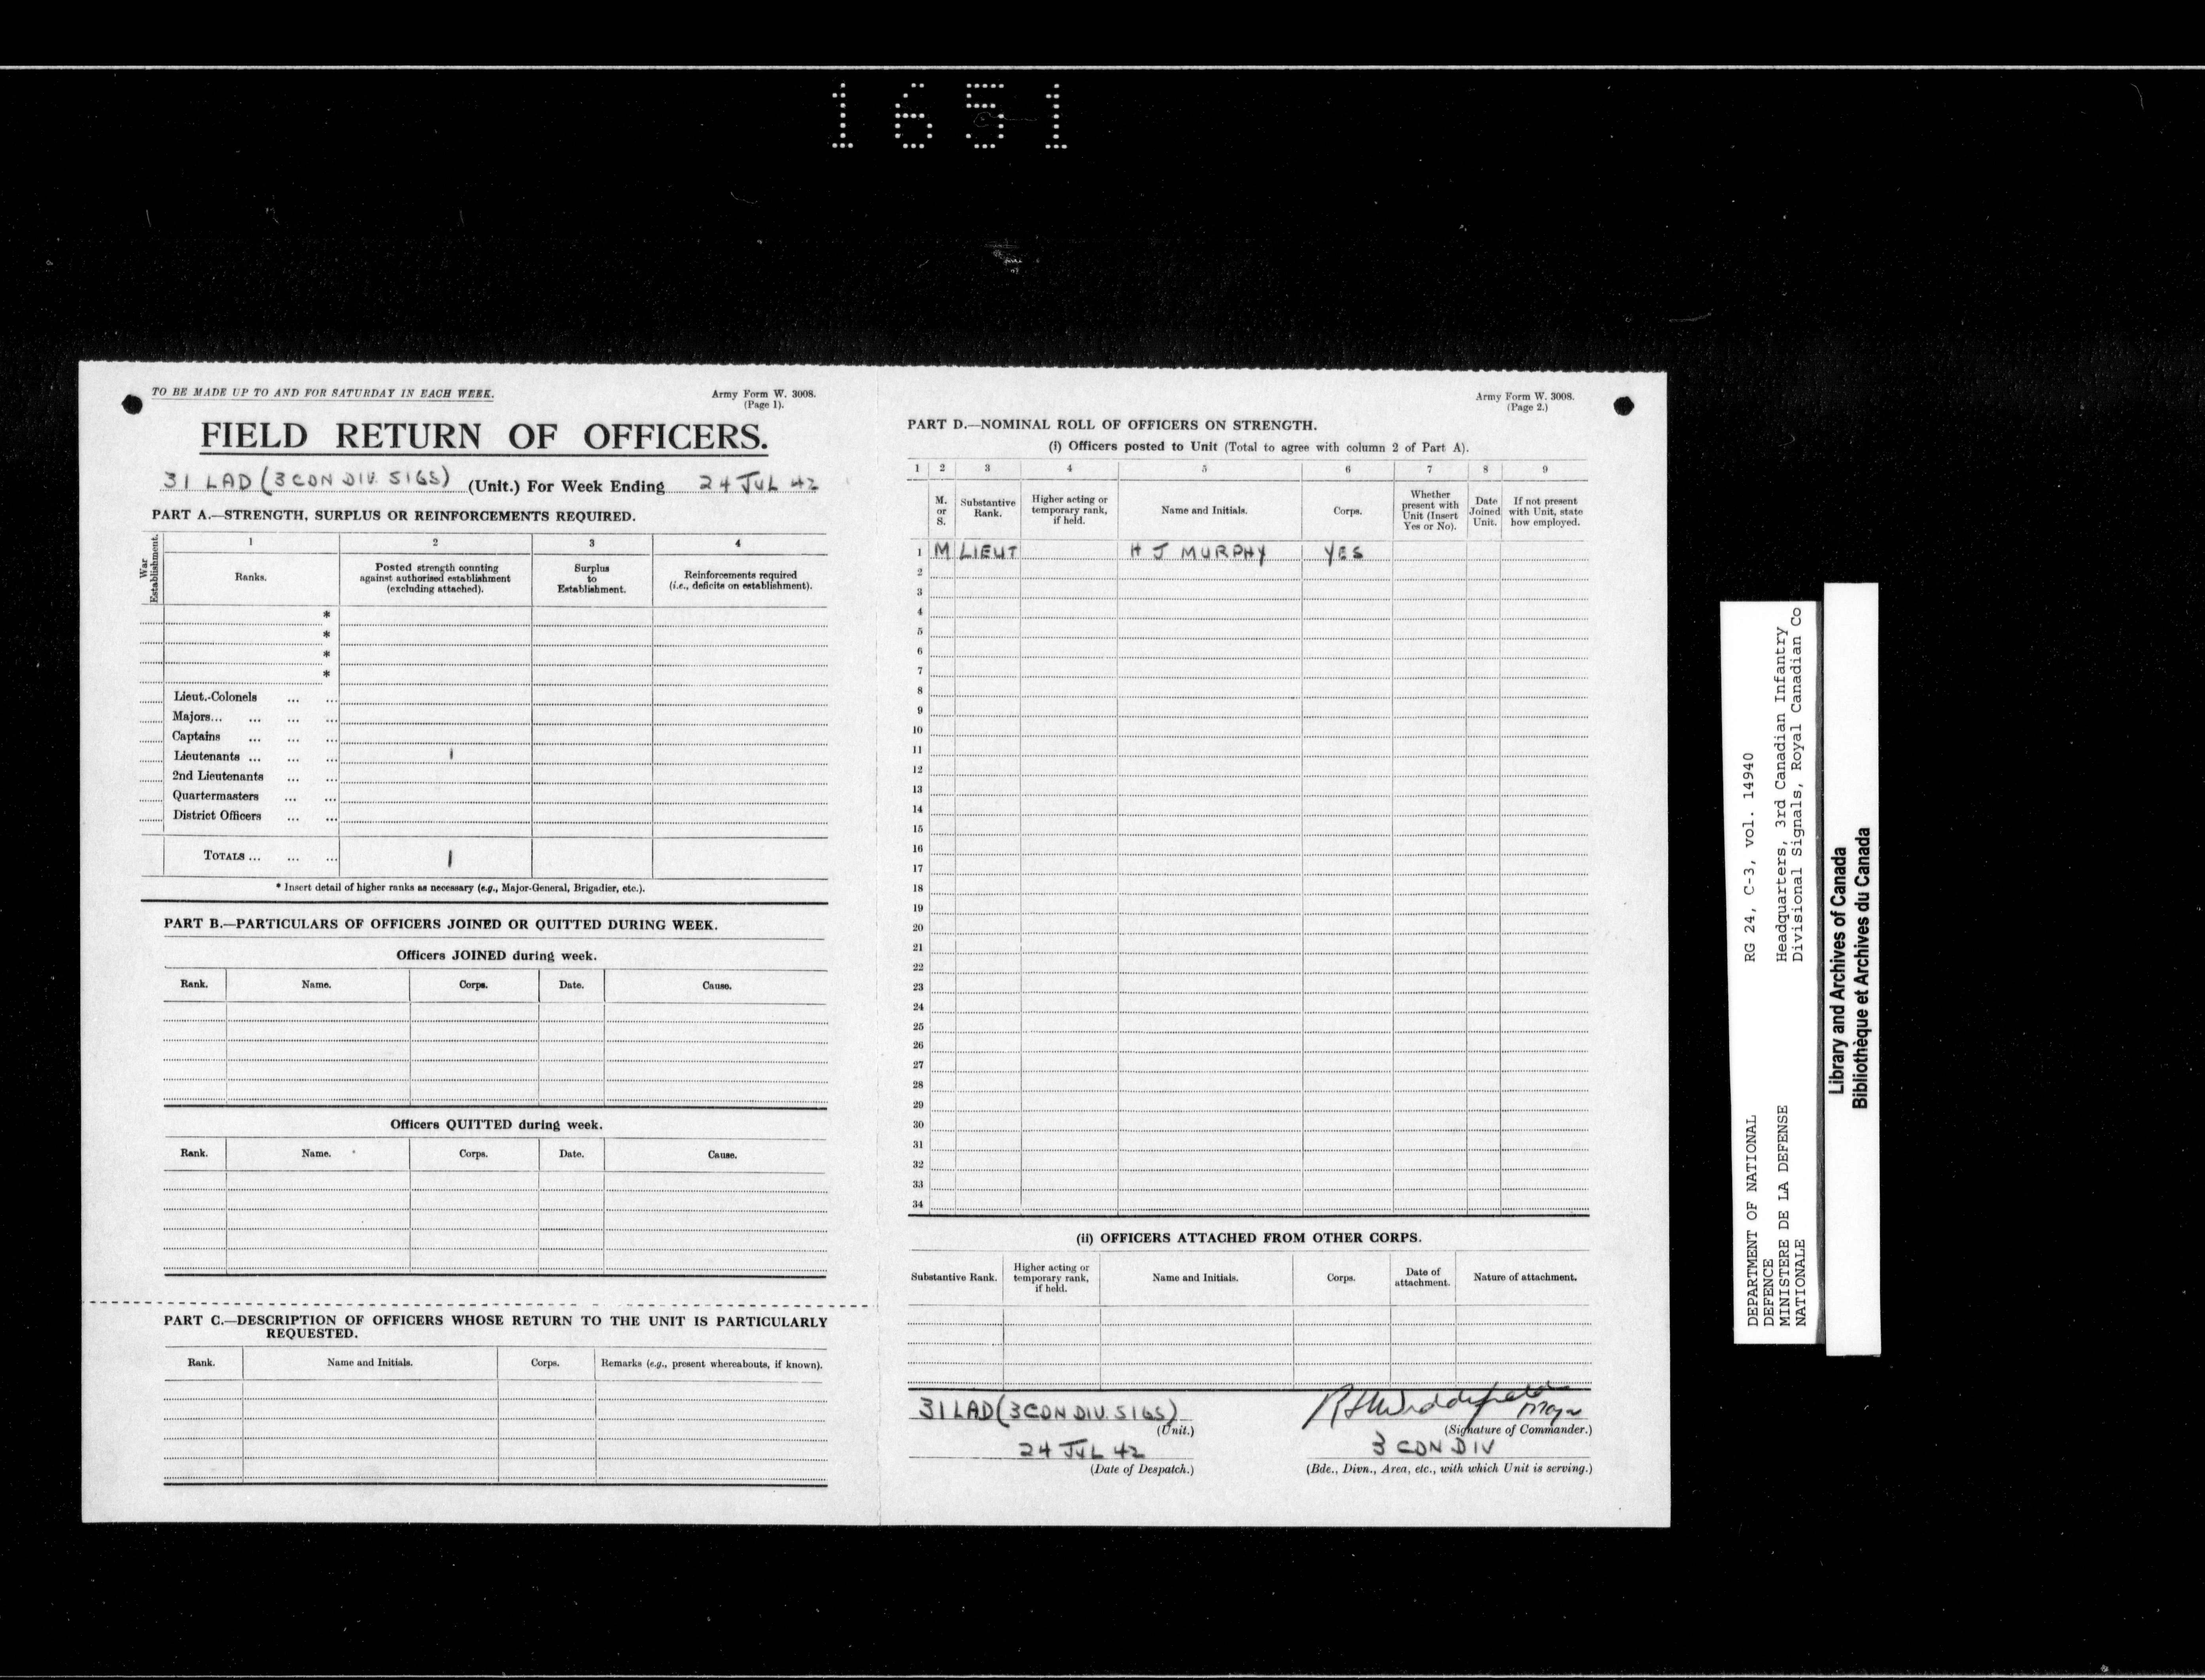 1651
TO BE MADE UP TO AND FOR SATURDAY IN EACH WEEK.
Army Form W. 3008.
(Page 1).
FIELD RETURN OF OFFICERS.
31 LAD (3 CDN DIV. SIGS) (Unit.) For Week Ending 24 JUL 42
PART A.—STRENGTH, SURPLUS OR REINFORCEMENTS REQUIRED.
War Establishment.
1 2 3 4
Ranks.
Posted strength counting
against authorised establishment
(excluding attached).
Surplus
to
Establishment.
Reinforcements required
(i.e., deficits on establishment).
*
*
*
*
Lieut.-Colonels ... ...
Majors... ... ... ...
Captains ... ... ...
Lieutenants ... ... ... 1
2nd Lieutenants ... ...
Quartermasters ... ...
District Officers ... ...
TOTALS ... ... ... 1
* Insert detail of higher ranks as necessary (e.g., Major-General, Brigadier, etc.).
PART B.—PARTICULARS OF OFFICERS JOINED OR QUITTED DURING WEEK.
Officers JOINED during week.
Rank. Name. Corps. Date. Cause.
Officers QUITTED during week.
Rank. Name. Corps. Date. Cause.
PART C.—DESCRIPTION OF OFFICERS WHOSE RETURN TO THE UNIT IS PARTICULARLY
REQUESTED.
Rank. Name and Initials. Corps. Remarks (e.g., present whereabouts, if known).
Army Form W. 3008.
(Page 2.)
PART D.—NOMINAL ROLL OF OFFICERS ON STRENGTH.
(i) Officers posted to Unit (Total to agree with column 2 of Part A).
1 2 3 4 5 6 7 8 9
M.
or
S.
Substantive
Rank.
Higher acting or
temporary rank,
if held.
Name and Initials.
Corps.
Whether
present with
Unit (Insert
Yes or No).
Date
Joined
Unit.
If not present
with Unit, state
how employed.
1 M LIEUT H J MURPHY YES
2
3
4
5
6
7
8
9
10
11
12
13
14
15
16
17
18
19
20
21
22
23
24
25
26
27
28
29
30
31
32
33
34
(ii) OFFICERS ATTACHED FROM OTHER CORPS.
Substantive Rank.
Higher acting or
temporary rank,
if held.
Name and Initials.
Corps.
Date of
attachment.
Nature of attachment.
31 LAD (3 CDN DIV. SIGS)
(Unit.)
24 JUL 42
(Date of Despatch.)
Major
(Signature of Commander.)
3 CDN DIV
(Bde., Divn., Area, etc., with which Unit is serving.)
DEPARTMENT OF NATIONAL
DEFENCE
MINISTERE DE LA DEFENSE
NATIONALE
RG 24, C-3, vol. 14940
Headquarters, 3rd Canadian Infantry
Divisional Signals, Royal Canadian Co
Library and Archives of Canada
Bibliothèque et Archives du Canada